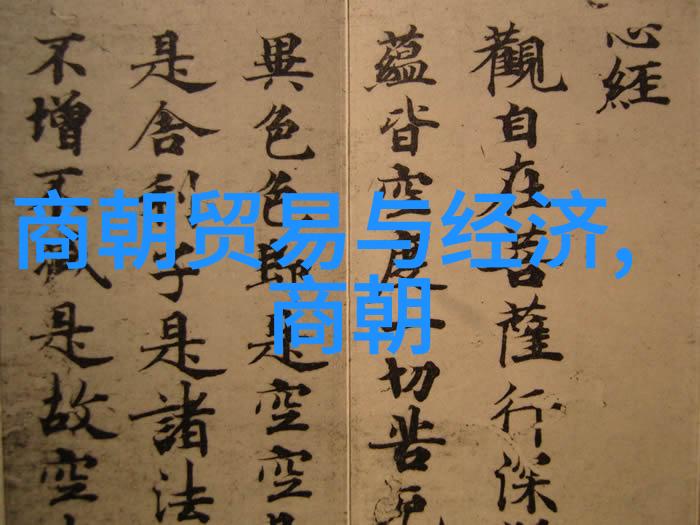 商朝贸易与经济,
商朝
心經
觀自在菩薩行深
蘊皆空度一切苦厄
異色色即是空空
是舍利子是諸法
不增不減是故空